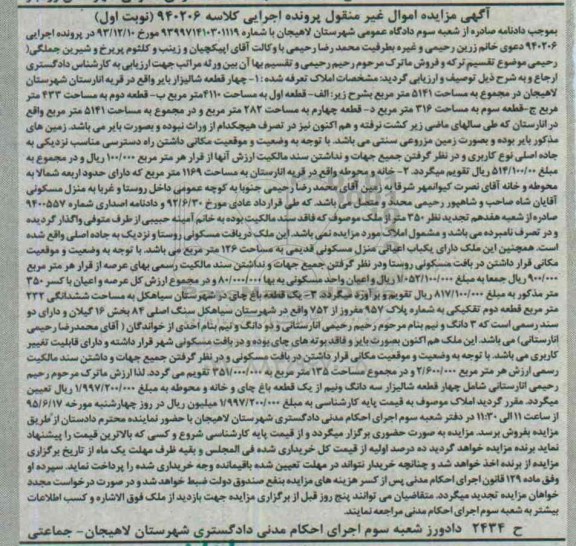 آگهی مزایده اموال غیر منقول پرونده اجرایی کلاسه ۹۴۰۲۰۶ (نوبت اول)
بموجب دادنامه صادره از شعبه سوم دادگاه عمومی شهرستان لاهیجان با شماره ۹۳۰۹۹۷۱۴۱۰۳۰۱۱۱۹ مورخ ۹۳/۱۲/۱۰ در پرونده اجرایی
۹۴۰۲۰۶ دعوی خانم زرین رحیمی و غیره بطرفیت محمد رضا رحیمی با وکالت آقای اپیکچیان و زینب و کلثوم پریرخ و شیرین جملگی(
رحیمی موضوع تقسیم ترکه و فروش ماترک مرحوم رحیم رحیمی و تقسیم بها آن بین ورثه مراتب جهت ارزیابی به کارشناس دادگستری
ارجاع و به شرح ذیل توصیف و ارزیابی گردید: مشخصات املاک تعرفه شده : ۱- چهار قطعه شالیزار بایر واقع در قریه انارستان شهرستان
لاهیجان در مجموع به مساحت ۵۱۴۱ متر مربع بشرح زیر: الف- قطعه اول به مساحت ۴۱۱۰متر مربع ب- قطعه دوم به مساحت ۴۳۳ متر
مربع ج-قطعه سوم به مساحت ۳۱۶ متر مربع د- قطعه چهارم به مساحت ۲۸۲ متر مربع و در مجموع به مساحت ۵۱۴۱ متر مربع واقع
در انارستان که طی سالهای ماضی زیر کشت نرفته و هم اکنون نیز در تصرف هیچکدام از وراث نبوده و بصورت بایر می باشد. زمین های
مذکور بایر بوده و بصورت زمین مزروعی سنتی می باشد. با توجه به وضعیت و موقعیت مکانی داشتن راه دسترسی مناسب نزدیکی به
جاده اصلی نوع کاربری و در نظر گرفتن جمیع جهات و نداشتن سند مالکیت ارزش آنها از قرار هر متر مربع ۱۰۰/۰۰۰ ریال و در مجموع به
مبلغ ۵۱۴/۱۰۰/۰۰۰ ریال تقویم میگردد. ۲- خانه و محوطه واقع در قریه انارستان به مساحت ۱۱۶۹ متر مربع که دارای حدود اربعه شمالا به
محوطه و خانه آقای نصرت کیوانمهر شرقا به زمین آقای محمد رضا رحیمی جنوبا به کوچه عمومی داخل روستا و غربا به منزل مسکونی
آقایان شاه صاحب و شاهپور رحیمی محدد و متصل می باشد. که طی قرارداد عادی مورخ ۹۲/۶/۳۰ و دادنامه اصداری شماره ۹۴۰۰۵۵۷
صادره از شعبه هفدهم تجدید نظر ۳۵۰ متر از ملک موصوف که فاقد سند مالکیت بوده به خانم آمینه حبیبی از طرف متوفی واگذار گردیده
و در تصرف نامبرده می باشد و مشمول املاک مورد مزایده نمی باشد. این ملک در بافت مسکونی روستا و نزدیک به جاده اصلی واقع شده
است. همچنین این ملک دارای یکباب اعیانی منزل مسکونی قدیمی به مساحت ۱۲۶ متر مربع می باشد. با توجه به وضعیت و موقعیت
مکانی قرار داشتن در بافت مسکونی روستا ودر نظر گرفتن جمیع جهات و نداشتن سند مالکیت رسمی بهای عرصه از قرار هر متر مربع
۹۰۰/۰۰۰ ریال جمعا به مبلغ ۱/۰۵۲/۱۰۰/۰۰۰ ریال و اعیان واحد مسکونی به بها ۸۰/۰۰۰/۰۰۰ و در مجموع ارزش کل عرصه و اعیان با کسر ۳۵۰
متر مذکور به مبلغ ۸۱۷/۱۰۰/۰۰۰ ریال تقویم و برآورد میگردد. ۳- یک قطعه باغ چای در شهرستان سیاهکل به مساحت ششدانگی ۲۳۲
متر مربع قطعه دوم تفکیکی به شماره پلاک ۹۵۷ مفروز از ۷۵۲ واقع در شهرستان سیاهکل سنگ اصلی ۸۴ بخش ۱۶ گیلان و دارای دو
سند رسمی است که ۳ دانگ و نیم بنام مرحوم رحیم رحیمی انارستانی و دو دانگ و نیم بنام احدی از خواندگان ( آقای محمدرضا رحیمی
انارستانی) می باشد. این ملک هم اکنون بصورت بایر و فاقد بوته های چای بوده و در بافت مسکونی شهر قرار داشته و دارای قابلیت تغییر
کاربری می باشد. با توجه به وضعیت و موقعیت مکانی قرار داشتن در بافت مسکونی و در نظر گرفتن جمیع جهات و داشتن سند مالکیت
رسمی ارزش هر متر مربع ۲/۶۰۰/۰۰۰ و در مجموع مساحت ۱۳۵ متر مربع به ۳۵۱/۰۰۰/۰۰۰ تقویم می گردد. لذا ارزش ماترک مرحوم رحیم
رحیمی انارستانی شامل چهار قطعه شالیزار سه دانگ ونیم از یک قطعه باغ چای و خانه و محوطه به مبلغ ۱/۹۹۷/۲۰۰/۰۰۰ ریال تعیین
میگردد. مقرر گردید املاک موصوف به قیمت پایه کارشناسی به مبلغ ۱/۹۹۷/۲۰۰/۰۰۰ میلیون ریال در روز چهارشنبه مورخه ۹۵/۶/۱۷
از ساعت ۱۱ الی ۱۱:۳۰ در دفتر شعبه سوم اجرای احکام مدنی دادگستری شهرستان لاهیجان با حضور نماینده محترم دادستان از طریق
مزایده بفروش برسد. مزایده به صورت حضوری برگزار میگردد و از قیمت پایه کارشناسی شروع و کسی که بالاترین قیمت را پیشنهاد
نماید برنده مزایده خواهد گردید ده درصد اولیه از قیمت کل خریداری شده فی المجلس و بقیه ظرف مهلت یک ماه از تاریخ برگزاری
مزایده از برنده اخذ خواهد شد و چنانچه خریدار نتواند در مهلت تعیین شده باقیمانده وجه خریداری شده را پرداخت نماید. سپرده او
وفق ماده ۱۲۹ قانون اجرای احکام مدنی پس از کسر هزینه های مزایده بنفع صندوق دولت ضبط خواهد شد و در صورت درخواست مجدد
خواهان مزایده تجدید میگردد. متقاضیان می توانند پنج روز قبل از برگزاری مزایده جهت بازدید از ملک فوق الاشاره و کسب اطلاعات
بیشتر به شعبه سوم اجرای احکام مدنی مراجعه نمایند.
ح ۲۴۳۴ دادورز شعبه سوم اجرای احکام مدنی دادگستری شهرستان لاهیجان- جماعتی